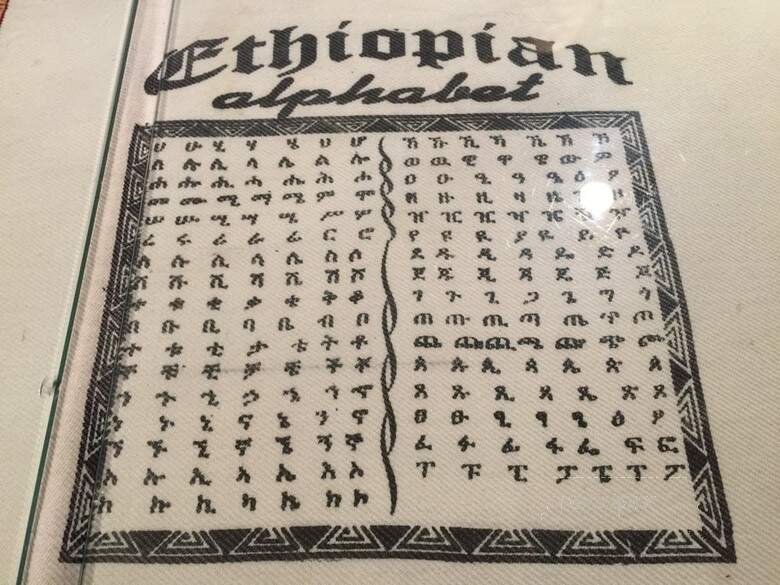 Ethiopian
alphabet
ሀ ሁ ሂ ሃ ሄ ህ ሆ
ለ ሉ ሊ ላ ሌ ል ሎ
ሐ ሑ ሒ ሓ ሔ ሕ ሖ
መ ሙ ሚ ማ ሜ ም ሞ
ሠ ሡ ሢ ሣ ሤ ሥ ሦ
ረ ሩ ሪ ራ ሬ ር ሮ
ሰ ሱ ሲ ሳ ሴ ስ ሶ
ሸ ሹ ሺ ሻ ሼ ሽ ሾ
ቀ ቁ ቂ ቃ ቄ ቅ ቆ
በ ቡ ቢ ባ ቤ ብ ቦ
ተ ቱ ቲ ታ ቴ ት ቶ
ቸ ቹ ቺ ቻ ቼ ች ቾ
ኀ ኁ ኂ ኃ ኄ ኅ ኆ
ነ ኑ ኒ ና ኔ ን ኖ
ኘ ኙ ኚ ኛ ኜ ኝ ኞ
አ ኡ ኢ ኣ ኤ እ ኦ
ከ ኩ ኪ ካ ኬ ክ ኮ
ኸ ኹ ኺ ኻ ኼ ኽ ኾ
ወ ዉ ዊ ዋ ዌ ው ዎ
ዐ ዑ ዒ ዓ ዔ ዕ ዖ
ዘ ዙ ዚ ዛ ዜ
ዠ ዡ ዢ ዣ ዤ ዦ
የ ዩ ዪ ያ ዬ ይ ዮ
ደ ዱ ዲ ዳ ዴ ድ ዶ
ጀ ጁ ጂ ጃ ጄ ጅ ጆ
ገ ጉ ጊ ጋ ጌ ግ ጎ
ጠ ጡ ጢ ጣ ጤ ጥ ጦ
ጨ ጩ ጪ ጫ ጬ ጭ ጮ
ጰ ጱ ጲ ጳ ጴ ጵ ጶ
ጸ ጹ ጺ ጻ ጼ ጽ ጾ
ፀ ፁ ፂ ፃ ፄ ፅ ፆ
ፈ ፉ ፊ ፋ ፌ ፍ ፎ
ፐ ፑ ፒ ፓ ፔ ፕ ፖ